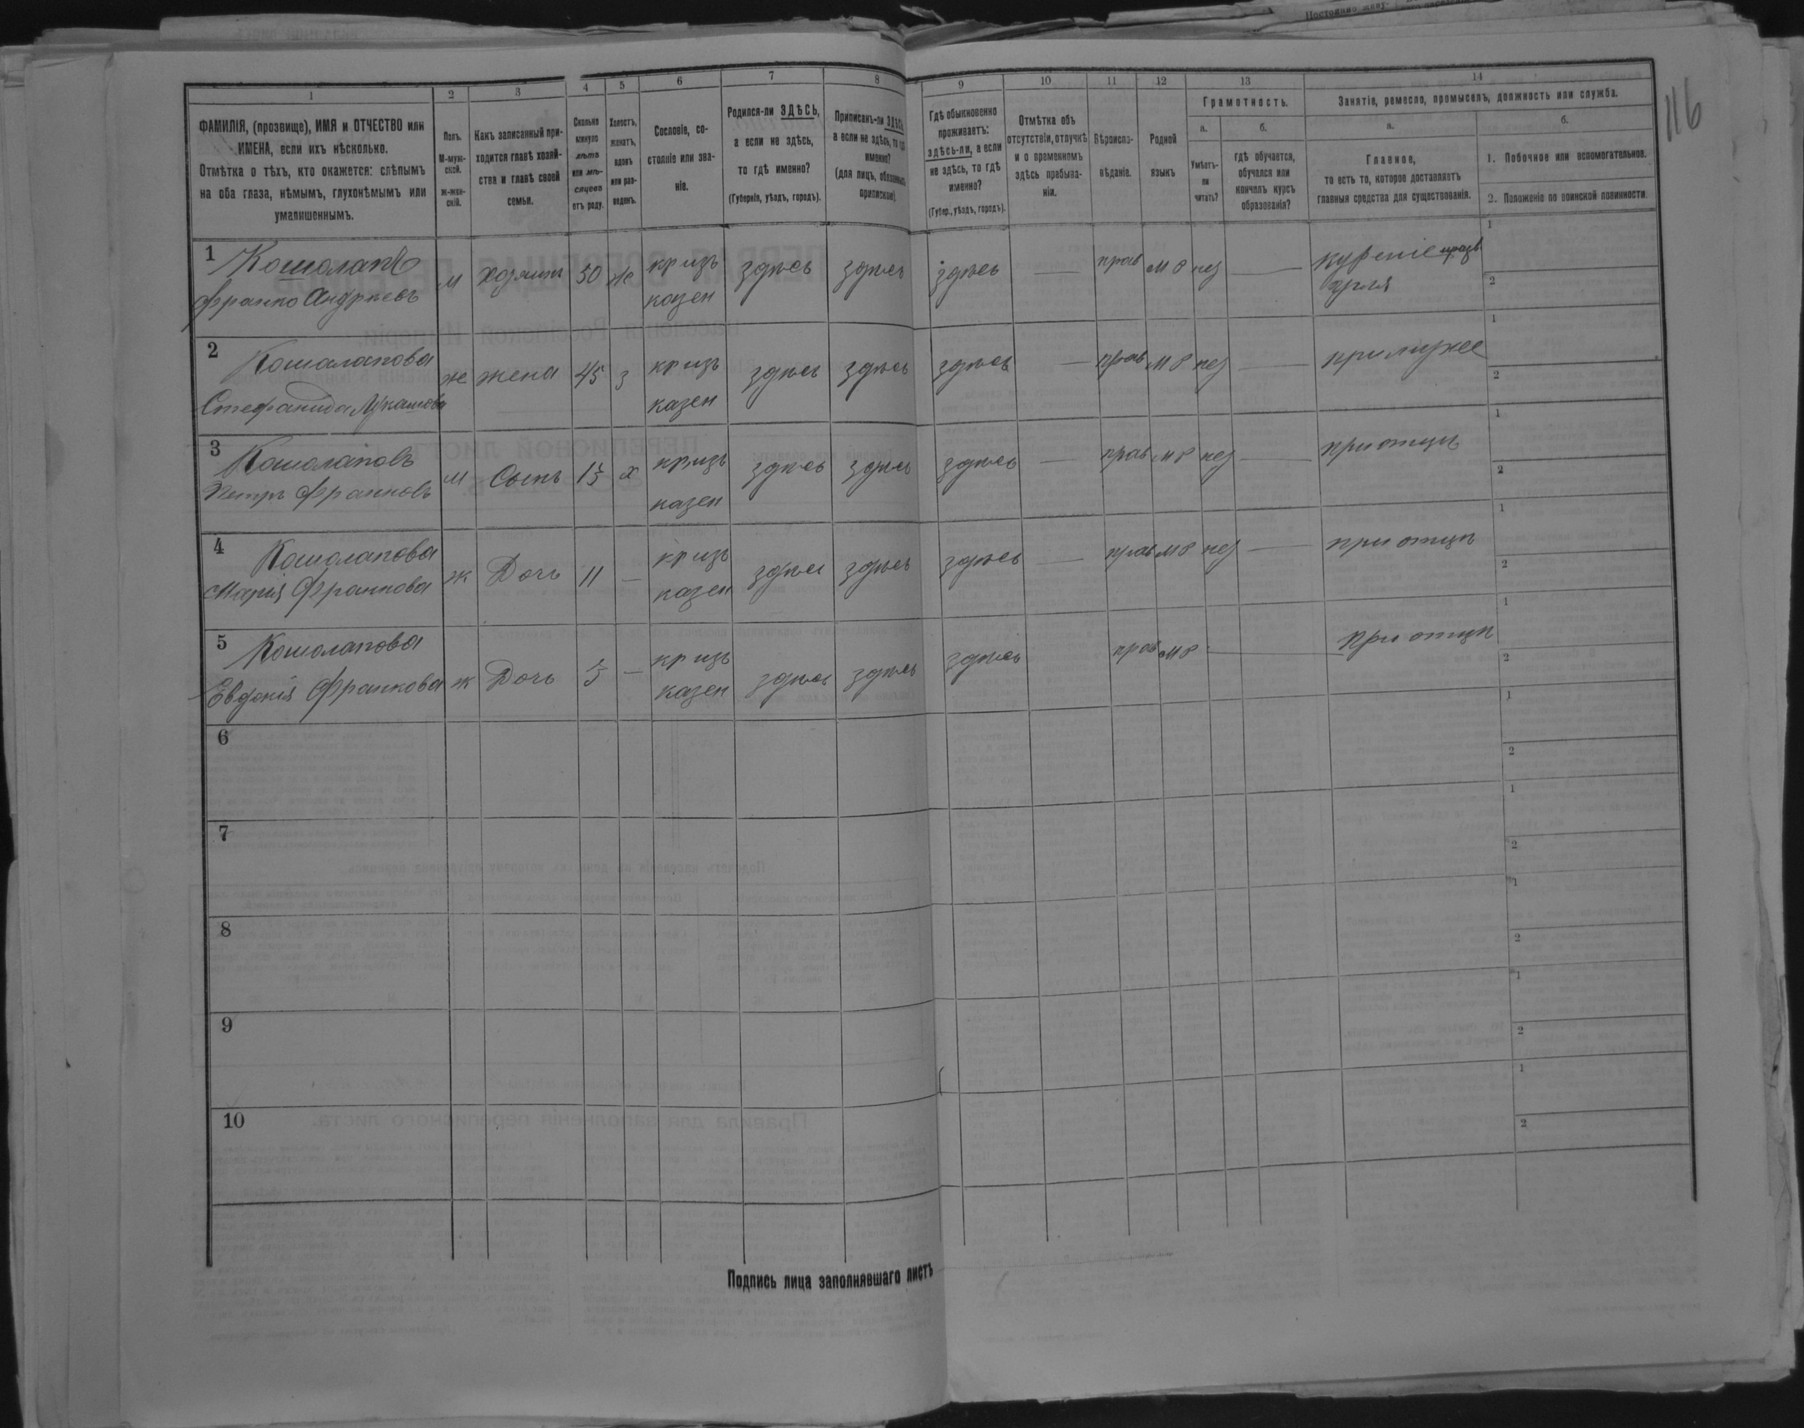 116
1 2 3 4 5 6 7 8 9 10 11 12 13 14
ФАМИЛІЯ, (прозвище), ИМЯ и ОТЧЕСТВО или
ИМЕНА, если ихъ нѣсколько.
Отмѣтка о тѣхъ, кто окажется: слѣпымъ
на оба глаза, нѣмымъ, глухонѣмымъ или
умалишеннымъ.
Полъ.
М-муж-
ской.
ж-жен-
скій.
Какъ записанный при-
ходится главѣ хозяй-
ства и главѣ своей
семьи.
Сколько
минуло
лѣтъ
или мѣ-
сяцевъ
отъ роду.
Холостъ,
женатъ,
вдовъ
или раз-
веденъ.
Сословіе, со-
стояніе или зва-
ніе.
Родился-ли ЗДѢСЬ,
а если не здѣсь,
то гдѣ именно?
(Губернія, уѣздъ, городъ).
Приписанъ-ли ЗДѢСЬ
а если не здѣсь, то гдѣ
именно?
(для лицъ, обязанныхъ
припискою)
Гдѣ обыкновенно
проживаетъ:
здѣсь-ли, а если
не здѣсь, то гдѣ
именно?
(Губер., уѣздъ, городъ).
Отмѣтка объ
отсутствіи, отлучкѣ
и о временномъ
здѣсь пребыва-
ніи.
Вѣроиспо-
вѣданіе.
Родной
языкъ
Грамотность.
а.
Умѣетъ-
ли
читать?
б.
гдѣ обучается,
обучался или
кончилъ курсъ
образованія?
Занятіе, ремесло, промыселъ, должность или служба.
а.
Главное,
то есть то, которое доставляетъ
главныя средства для существованія.
б.
1. Побочное или вспомогательное.
2. Положеніе по воинской повинности.
1 Кошолапъ м хозяинъ 50 же кр изъ здѣсь здѣсь здѣсь — прав м р нѣ —
Франко Андреевъ казен
2 Кошолапова же жена 45 з кр изъ здѣсь здѣсь здѣсь — прав м р нѣ — при мужее
Стефанида Лукашова казен
3 Кошолаповъ м Сынъ 15 х кр изъ здѣсь здѣсь здѣсь — прав м р нѣ — при отцѣ
Петръ Франковъ казен
4 Кошолапова ж Дочь 11 — кр изъ здѣсь здѣсь здѣсь — прав м р нѣ — при отцѣ
Марія Франкова казен
5 Кошолапова ж Дочь 5 — кр изъ здѣсь здѣсь здѣсь прав м р — при отцѣ
Евдокія Франкова казен
6
7
8
9
10
Подпись лица заполнявшаго листъ